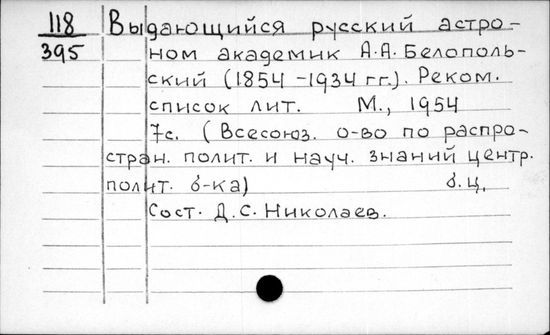 118 Выдающийся русский астро-
395 ном академик А.А. Белополь-
ский (1854-1934 гг.). Реком.
список лит. М., 1954
7с. (Всесоюз. о-во по распро-
стран. полит. и науч. знаний центр.
полит. б-ка) б.ц.
Сост. Д.С. Николаев.